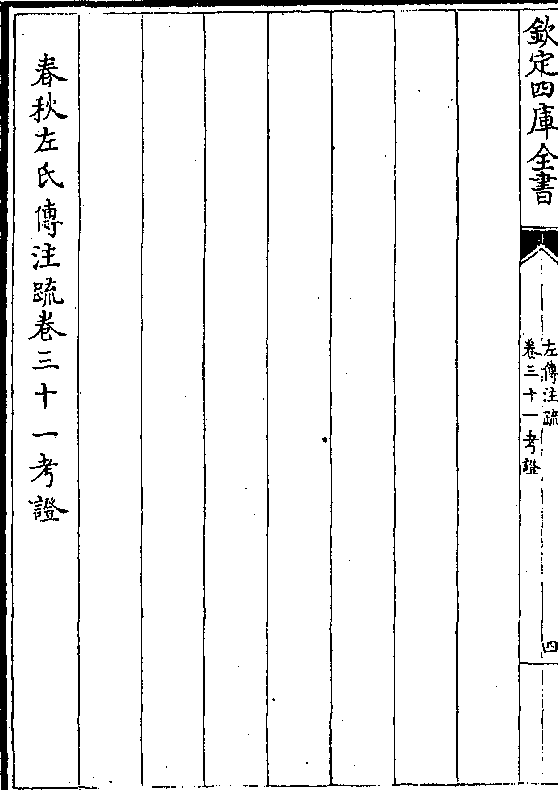 欽定四庫全書
左傳注疏
卷三十一考證
四
春秋左氏傳注疏卷三十一考證